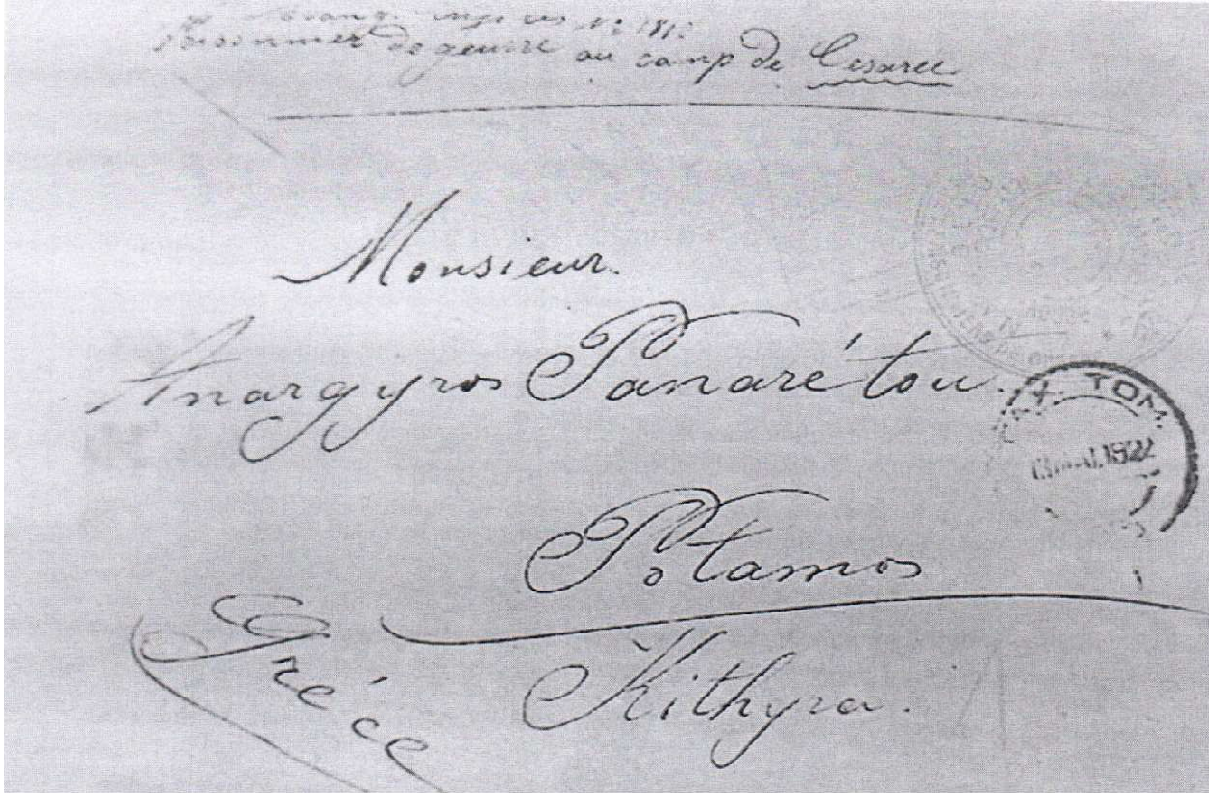 Prisonnier de guerre au camp de Cesarée
Monsieur.
Anargyros Panarétou.
TOM.
1922
Potamos
Kithyra.
Gréce